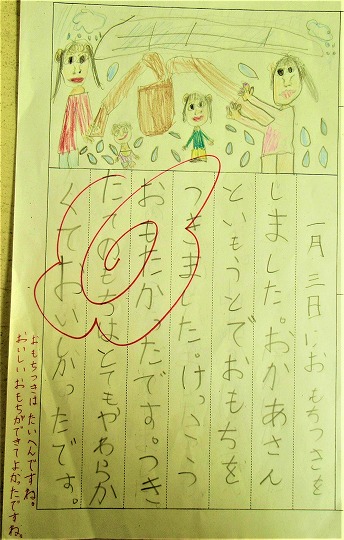 一月三日におもちつきを
しました。おかあさん
といもうとでおもちを
つきました。けっこう
おもたかったです。つき
たてのもちはとてもやわらか
くておいしかったです。
おもちつきはたいへんですね。
おいしいおもちができてよかったですね。